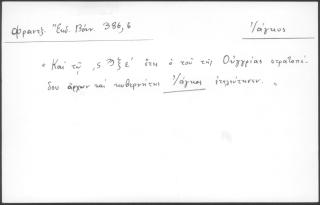 Φραντζ. Ἔκδ. Βόν. 386,6
Ἰάγκος
"Καὶ τῷ ,ς ϡξε' ἔτει ὁ τοῦ τῆς Οὐγγρίας στρατοπέ-
δου ἄρχων καὶ κυβερνήτης Ἰάγκος ἐτελεύτησεν. "